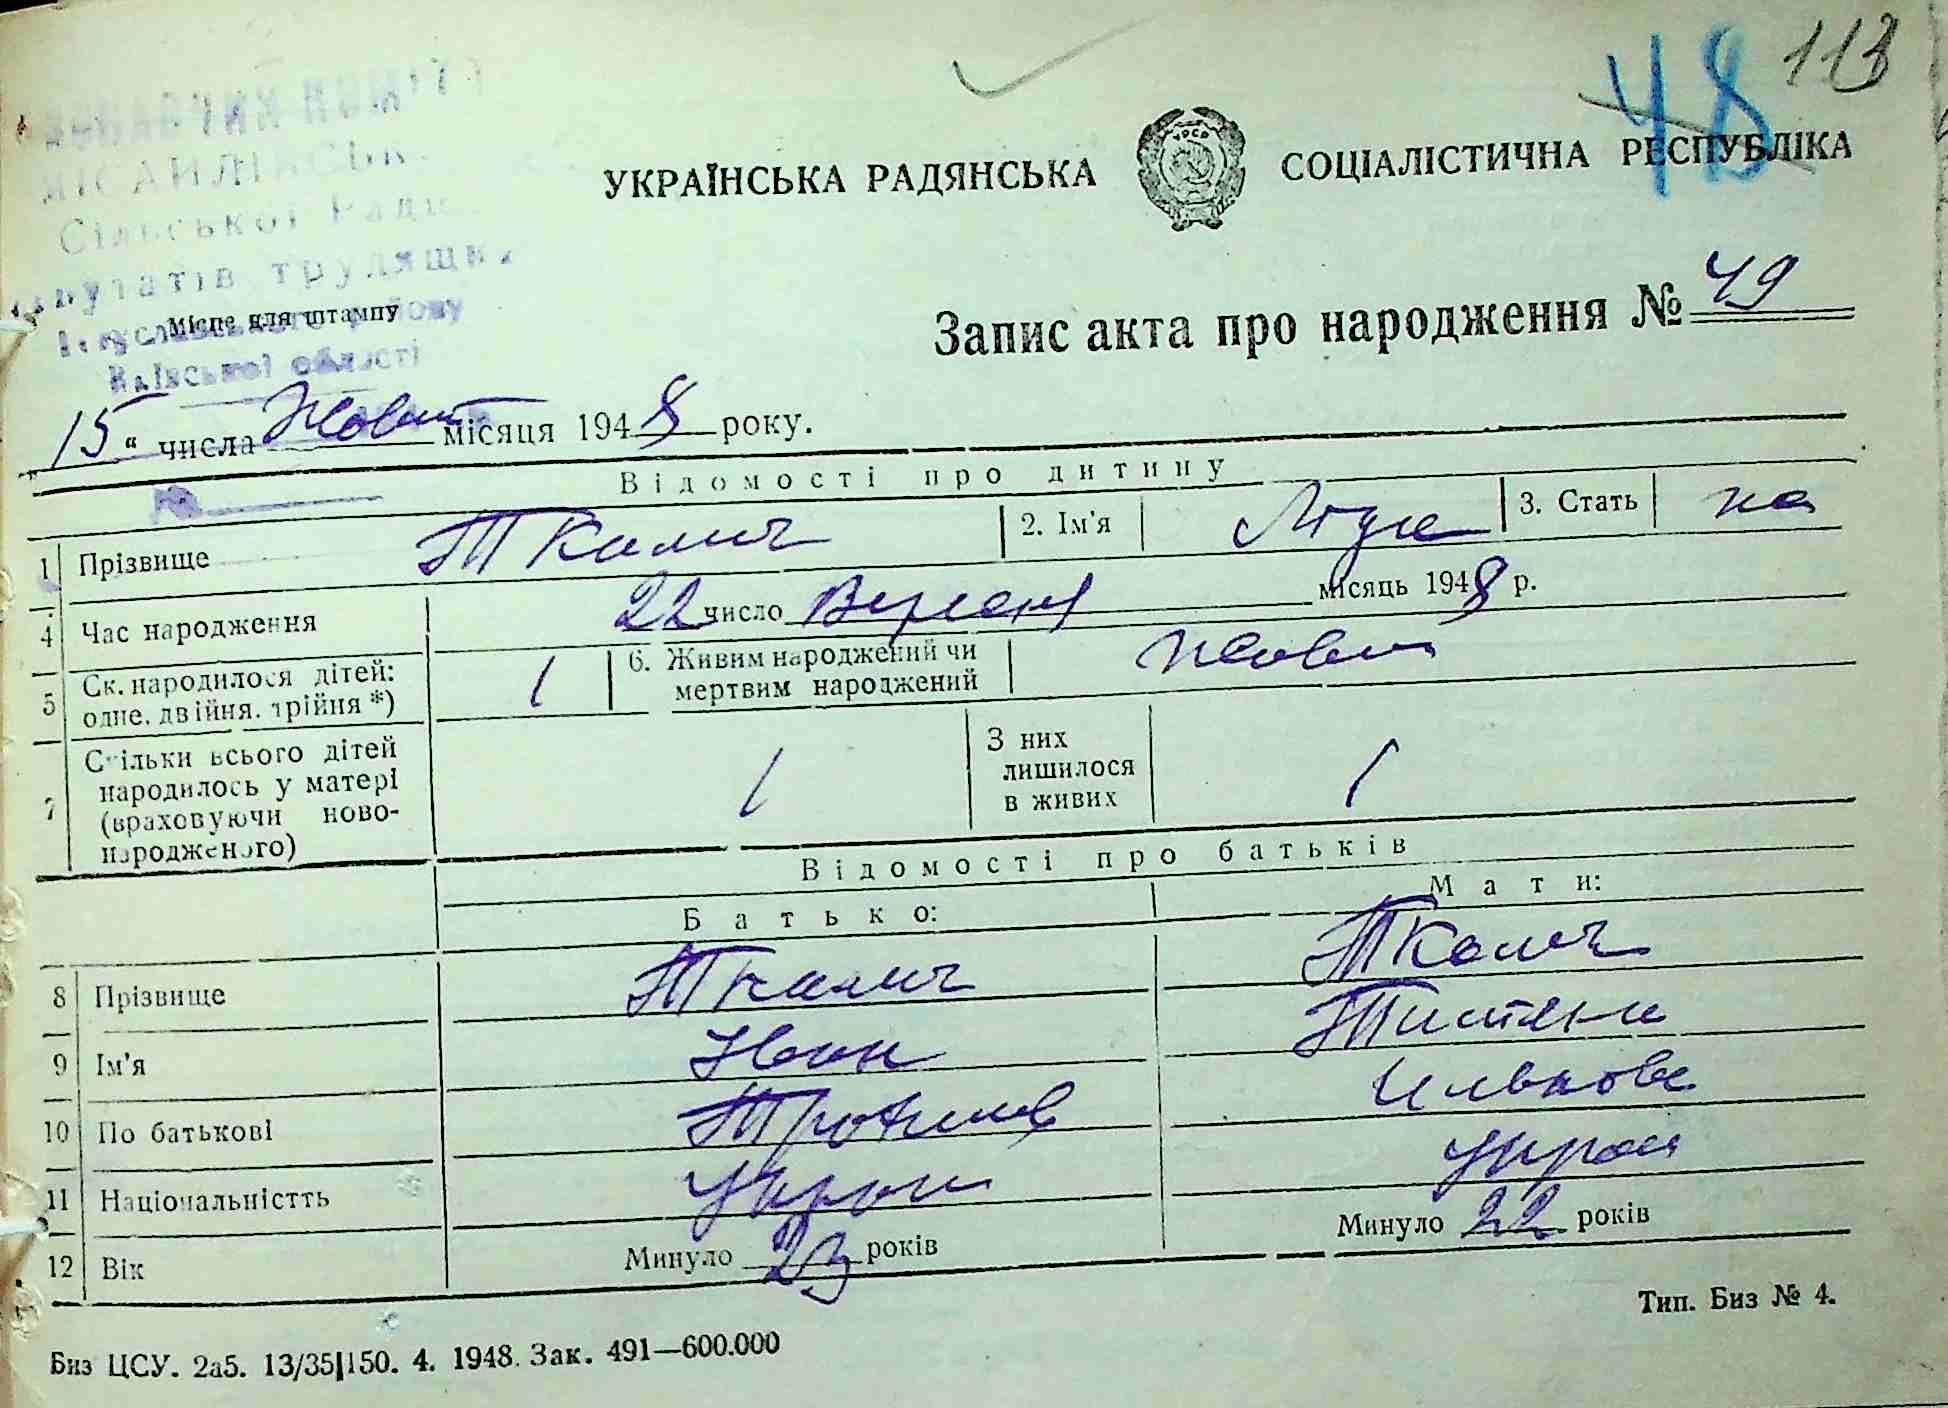 48 113
УКРАЇНСЬКА РАДЯНСЬКА СОЦІАЛІСТИЧНА РЕСПУБЛІКА
УРСР
Сільської Ради
трудящих
Місце для штампу
району
Київської області
Запис акта про народження № 49
"15" числа Жовт місяця 1948 року.
Відомості про дитину
1 Прізвище Ткалич 2. Ім'я 3. Стать
4 Час народження 22 число Вересня місяць 1948 р.
5 Ск. народилося дітей: одне, двійня, трійня *) 1 6. Живим народжений чи мертвим народжений
7 Скільки всього дітей народилось у матері (враховуючи ново-народженого) 1 З них лишилося в живих 1
Відомості про батьків
Батько: Мати:
8 Прізвище Ткалич Ткалич
9 Ім'я Иван Татяна
10 По батькові Трофимов Илькова
11 Національністть Украи Украи
12 Вік Минуло 23 років Минуло 22 років
Тип. Биз № 4.
Биз ЦСУ. 2а5. 13/35|150. 4. 1948. Зак. 491—600.000